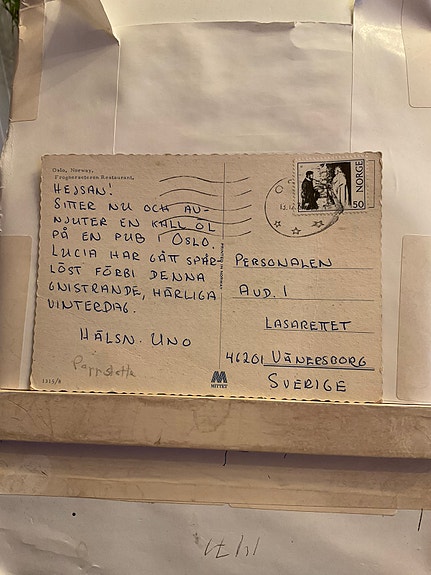 Oslo, Norway.
Frognerseteren Restaurant.
HEJSAN!
SITTER NU OCH AV-
NJUTER EN KALL ÖL
PÅ EN PUB I OSLO.
LUCIA HAR GÅTT SPÅR-
LÖST FÖRBI DENNA
GNISTRANDE, HÄRLIGA
VINTERDAG.
HÄLSN. UNO
1315/8
MITTET
NORGE
50
PERSONALEN
AVD. 1
LASARETTET
46201 VÄNERSBORG
SVERIGE